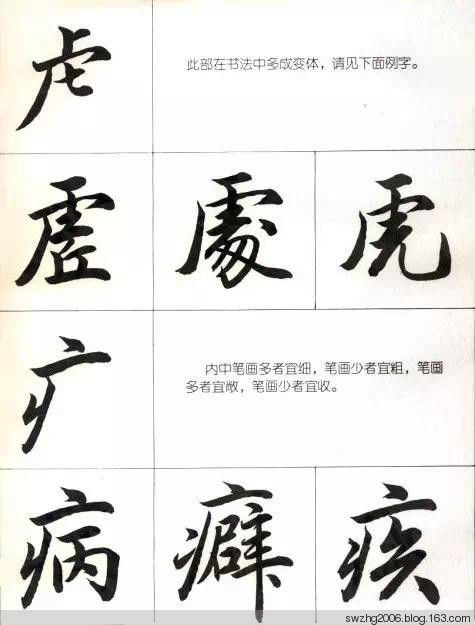 虍
此部在书法中多成变体，请见下面例字。
虚 處 虎
疒
内中笔画多者宜细，笔画少者宜粗，笔画
多者宜敞，笔画少者宜收。
病 癖 疾
swzhg2006.blog.163.com